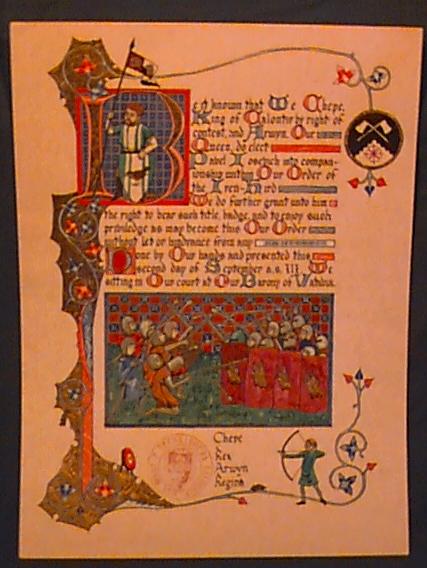 Be it known that We Chepe,
King of Calontir by right of
combat, and Arwyn, Our
Queen, do elect
Pavel Iosevich into compan-
ionship within Our Order of
the Iren-Hird
We do further grant unto him
the right to bear such title, badge, and to enjoy such
priviledge as may become this Our Order
without let or hindrance from any
Done by Our hands and presented this
second day of September a.s. III We
sitting in Our court at Our Barony of Vatavia.
Chepe
Rex
Arwyn
Regina